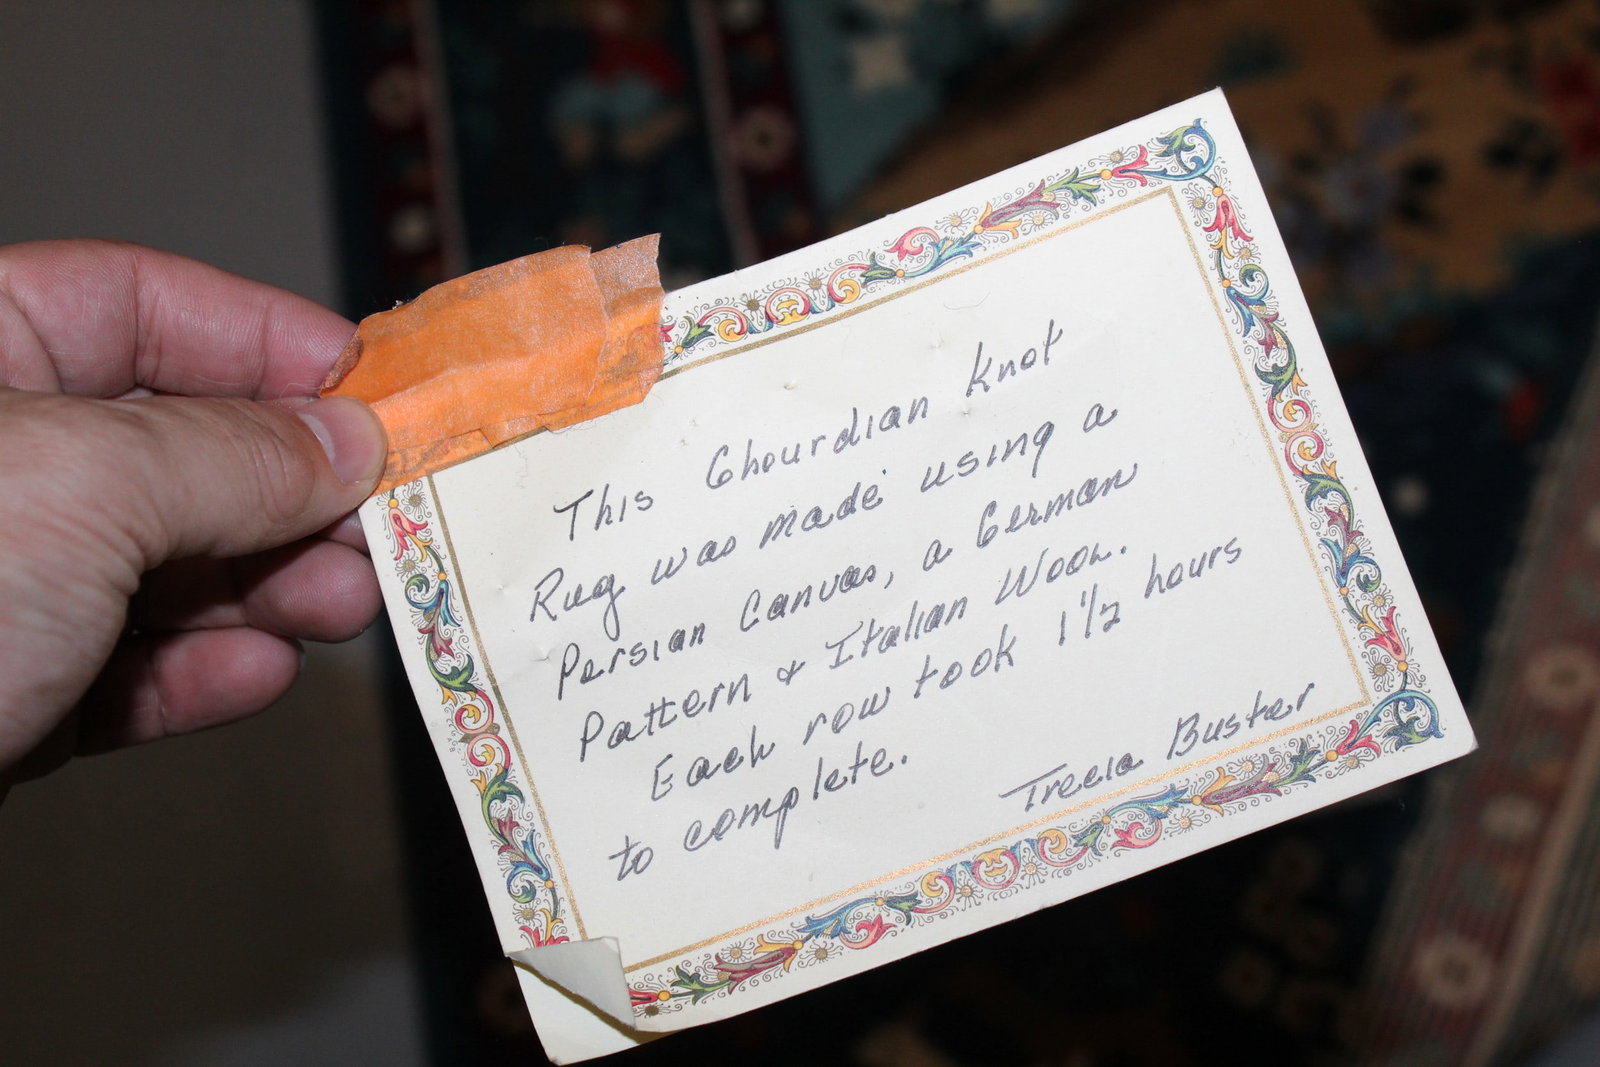 This Ghourdian Knot
Rug was made using a
Persian Canvas, a German
Pattern & Italian Wool.
Each row took 1 1/2 hours
to complete.
Treeia Buster